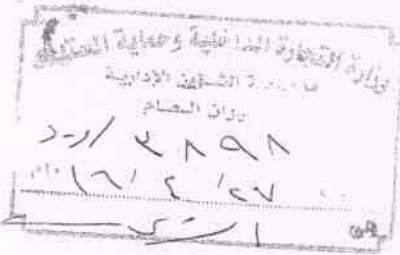 وزارة التجارة الداخلية وحماية المستهلك
مديرية الشؤون الإدارية
ديوان العام
٣٨٩٨ / و.د
٢٧ / ٤ / ١٦ ٢٠م